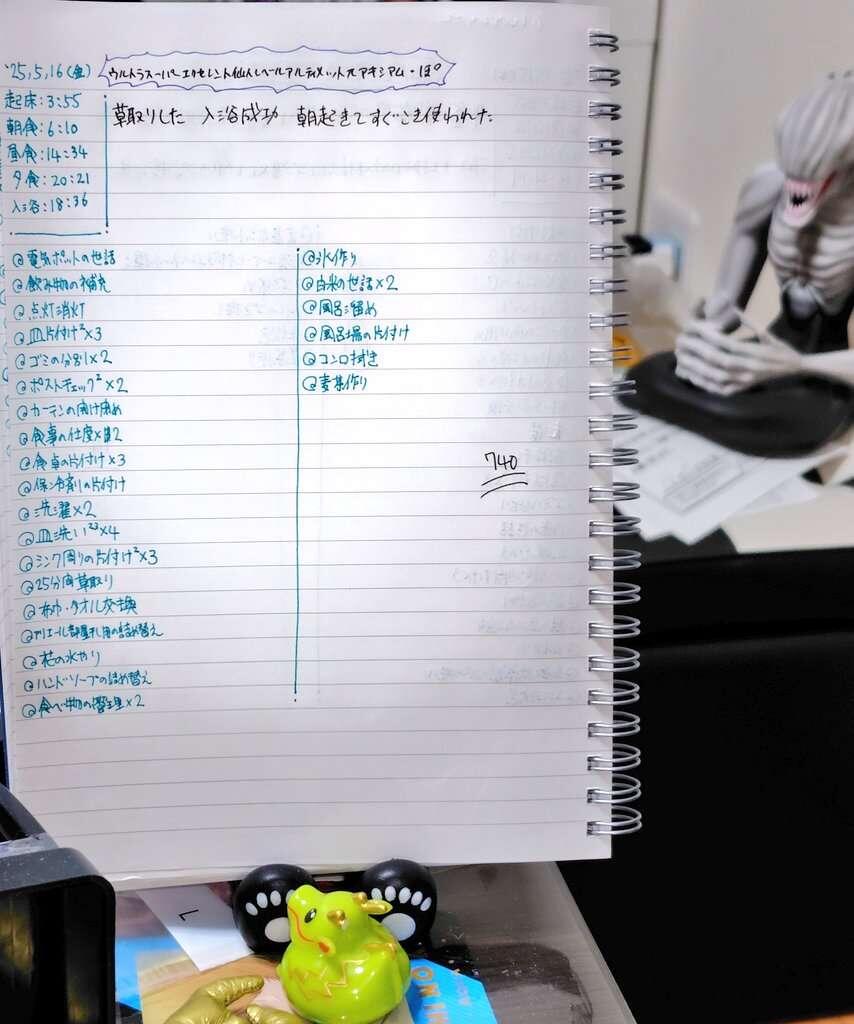 '25,5,16(金)
ウルトラスーパーエクセレント仙人レベルアルティメットπアキシアム・ぽ
起床:3:55
朝食:6:10
昼食:14:34
夕食:20:21
入浴:18:36
草取りした 入浴成功 朝起きてすぐこき使われた
@電気ポットの世話
@飲み物の補充
@点灯消灯
@皿片付け²×3
@ゴミの分別×2
@ポストチェック²×2
@カーテンの開け閉め
@食事の仕度×2
@食卓の片付け×3
@保冷剤の片付け
@洗濯×2
@皿洗い²³×4
@シンク周りの片付け²×3
@25分間草取り
@布巾・タオル交換
@アリエール部屋干し用の詰め替え
@花の水やり
@ハンドソープの詰め替え
@食べ物の整理×2
@氷作り
@白米の世話×2
@風呂溜め
@風呂場の片付け
@コンロ拭き
@麦茶作り
740
L